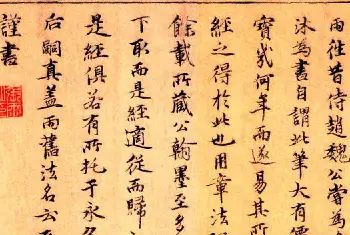 雨往昔侍趙魏公嘗為
沐為書自謂此筆大有
寶幾何年而遂易其所
經之得於此也用章法
餘載所藏公翰墨至多
下取而是經適從而歸
是經俱若有所托于永
后嗣真蓋雨舊法名云
謹書